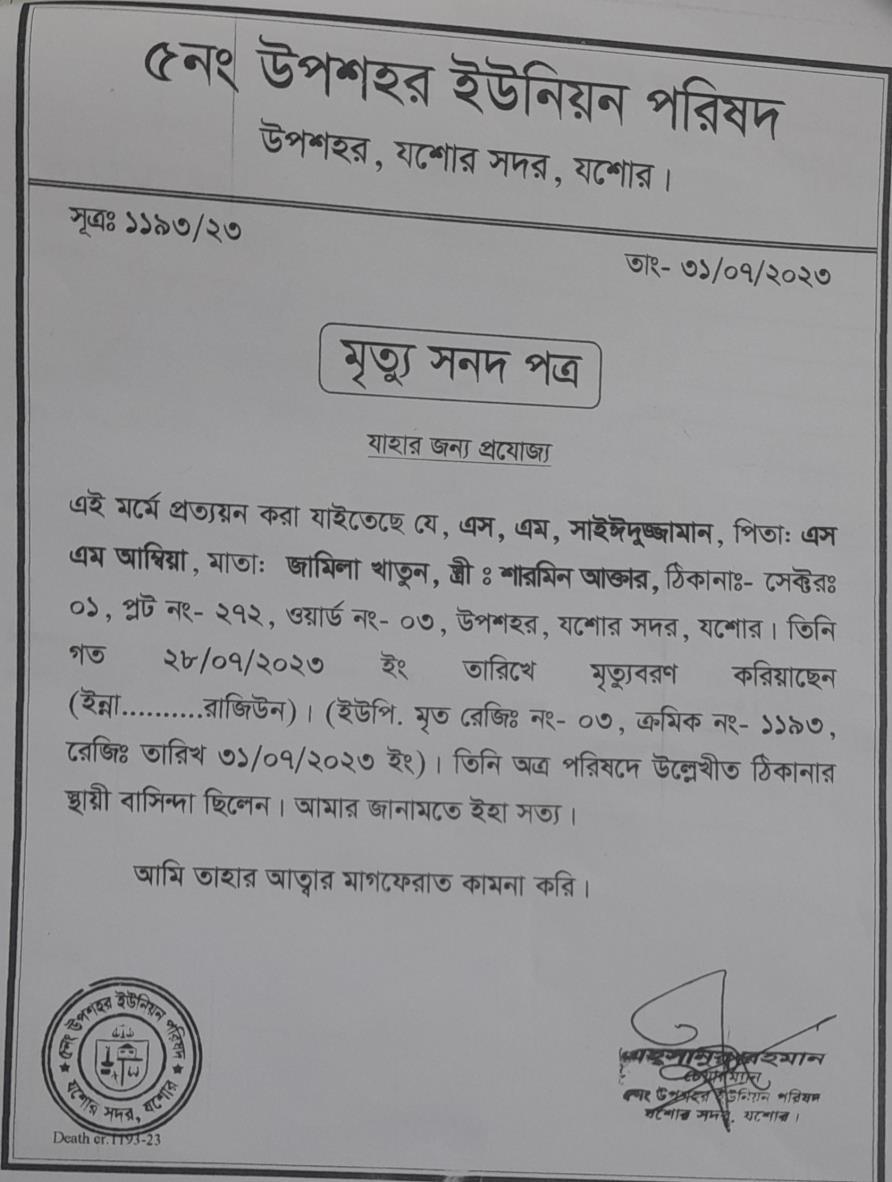 ৫নং উপশহর ইউনিয়ন পরিষদ
উপশহর, যশোর সদর, যশোর।
সূত্রঃ ১১৯৩/২৩
তাং- ৩১/০৭/২০২৩
মৃত্যু সনদ পত্র
যাহার জন্য প্রযোজ্য
এই মর্মে প্রত্যয়ন করা যাইতেছে যে, এস, এম, সাইঈদুজ্জামান, পিতাঃ এস
এম আম্বিয়া, মাতাঃ জামিলা খাতুন, স্ত্রী ঃ শারমিন আক্তার, ঠিকানাঃ- সেক্টরঃ
০১, প্লট নং- ২৭২, ওয়ার্ড নং- ০৩, উপশহর, যশোর সদর, যশোর। তিনি
গত ২৮/০৭/২০২৩ ইং তারিখে মৃত্যুবরণ করিয়াছেন
(ইন্না..........রাজিউন)। (ইউপি. মৃত রেজিঃ নং- ০৩, ক্রমিক নং- ১১৯৩,
রেজিঃ তারিখ ৩১/০৭/২০২৩ ইং)। তিনি অত্র পরিষদে উল্লেখীত ঠিকানার
স্থায়ী বাসিন্দা ছিলেন। আমার জানামতে ইহা সত্য।
আমি তাহার আত্বার মাগফেরাত কামনা করি।
৫নং উপশহর ইউনিয়ন পরিষদ
যশোর সদর, যশোর
Death cr.1193-23
রহমান
চেয়ারম্যান
৫নং উপশহর ইউনিয়ন পরিষদ
যশোর সদর, যশোর।